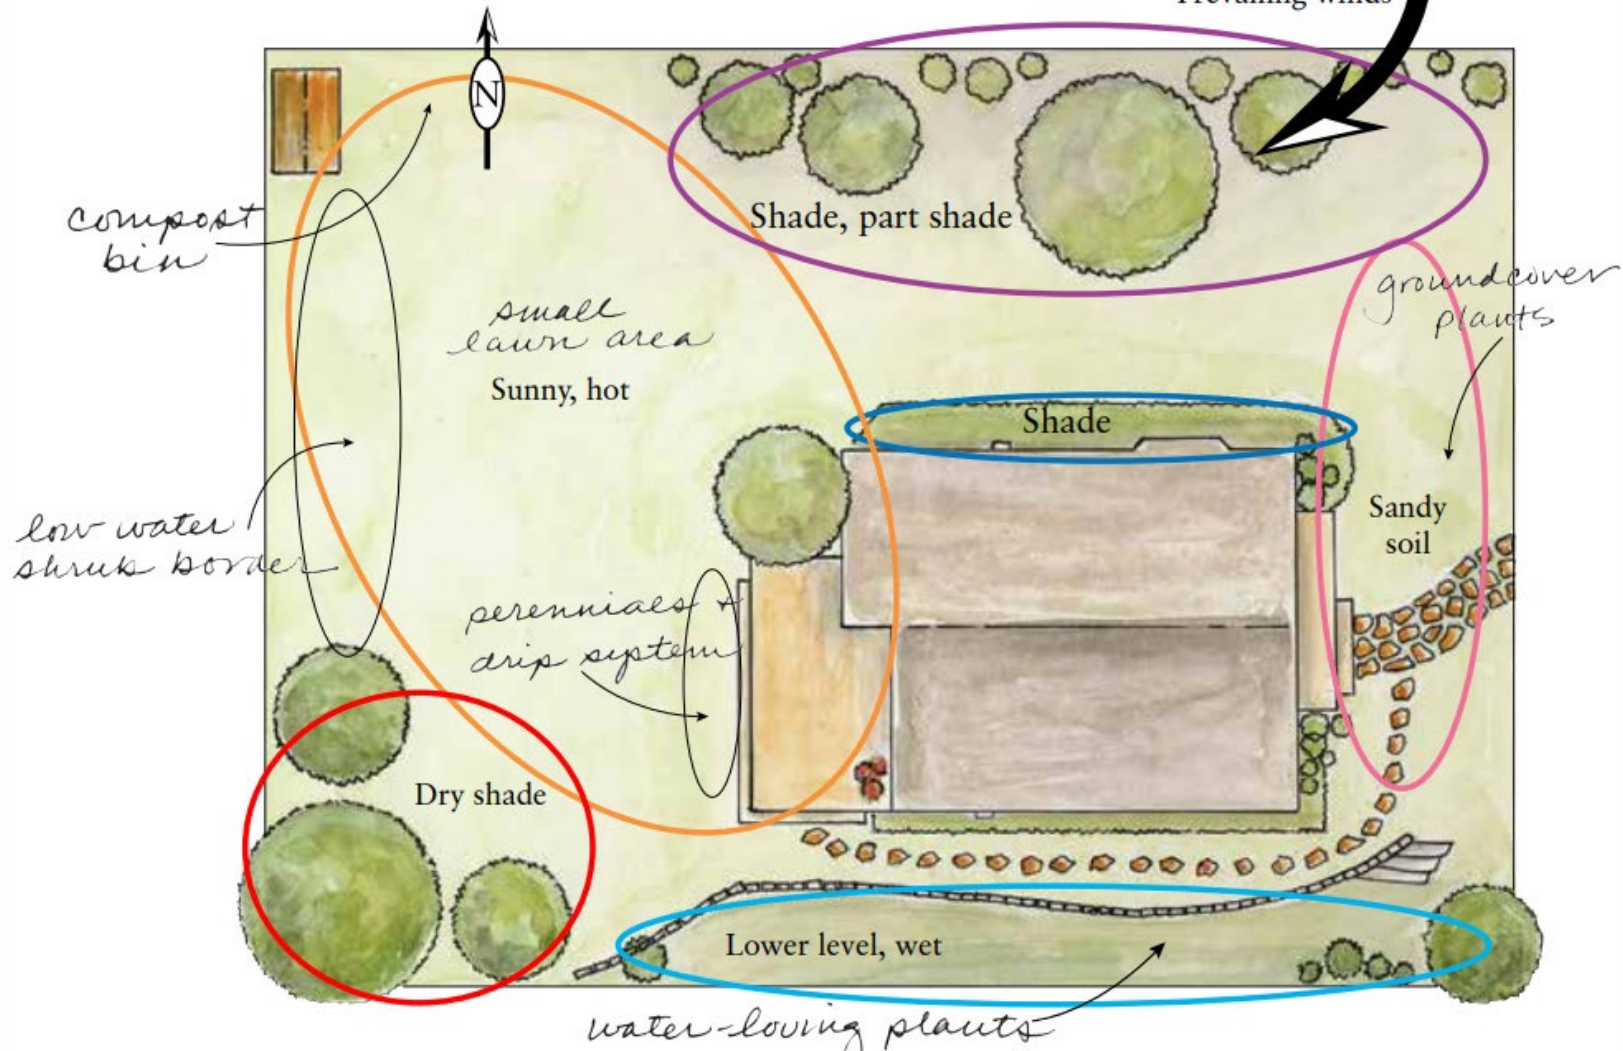 Prevailing winds
N
compost
bin
Shade, part shade
groundcover
plants
small
lawn area
Sunny, hot
Shade
Sandy
soil
low water
shrub border
perennials +
drip system
Dry shade
Lower level, wet
water-loving plants